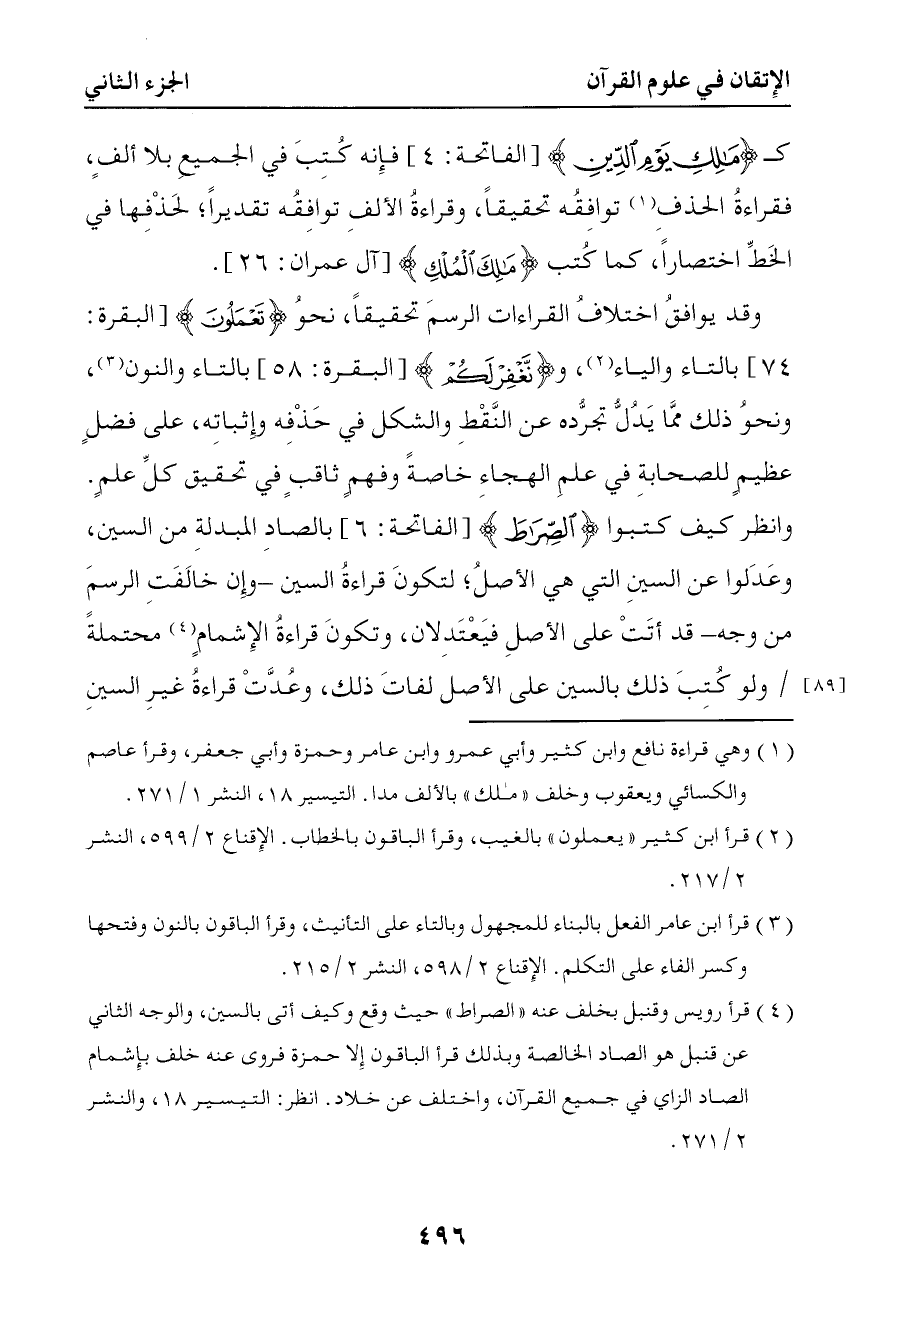 الإتقان في علوم القرآن
الجزء الثاني
كـ ﴿مَٰلِكِ يَوْمِ ٱلدِّينِ﴾ [الفاتحة: ٤] فإنه كُتِبَ في الجميعِ بلا ألفٍ،
فقراءةُ الحذفِ(١) توافقُه تحقيقاً، وقراءةُ الألفِ توافقُه تقديراً؛ لحَذْفِها في
الخَطِّ اختصاراً، كما كُتب ﴿مَٰلِكَ ٱلْمُلْكِ﴾ [آل عمران: ٢٦].
وقد يوافقُ اختلافُ القراءات الرسمَ تحقيقاً، نحوُ ﴿تَعْمَلُونَ﴾ [البقرة:
٧٤] بالتاء والياء(٢)، و﴿نَّغْفِرْ لَكُمْ﴾ [البقرة: ٥٨] بالتاء والنون(٣)،
ونحوُ ذلك ممَّا يَدُلُّ تجرُّده عن النَّقْطِ والشكل في حَذْفِه وإثباته، على فضلٍ
عظيمٍ للصحابة في علمِ الهجاء خاصةً وفهمٍ ثاقبٍ في تحقيق كلِّ علمٍ.
وانظر كيف كتبوا ﴿ٱلصِّرَٰطَ﴾ [الفاتحة: ٦] بالصاد المبدلة من السين،
وعَدَلوا عن السين التي هي الأصلُ؛ لتكونَ قراءةُ السين –وإن خالَفَت الرسمَ
من وجه– قد أتَتْ على الأصلِ فيَعْتَدِلان، وتكونَ قراءةُ الإشمامِ(٤) محتملةً
[٨٩] / ولو كُتِبَ ذلك بالسين على الأصل لفات ذلك، وعُدَّتْ قراءةُ غيرِ السين
(١) وهي قراءة نافع وابن كثير وأبي عمرو وابن عامر وحمزة وأبي جعفر، وقرأ عاصم
والكسائي ويعقوب وخلف «مٰلك» بالألف مدا. التيسير ١٨، النشر ١/ ٢٧١.
(٢) قرأ ابن كثير «يعملون» بالغيب، وقرأ الباقون بالخطاب. الإقناع ٢/ ٥٩٩، النشر
٢/ ٢١٧.
(٣) قرأ ابن عامر الفعل بالبناء للمجهول وبالتاء على التأنيث، وقرأ الباقون بالنون وفتحها
وكسر الفاء على التكلم. الإقناع ٢/ ٥٩٨، النشر ٢/ ٢١٥.
(٤) قرأ رويس وقنبل بخلف عنه «الصراط» حيث وقع وكيف أتى بالسين، والوجه الثاني
عن قنبل هو الصاد الخالصة وبذلك قرأ الباقون إلا حمزة فروى عنه خلف بإشمام
الصاد الزاي في جميع القرآن، واختلف عن خلاد. انظر: التيسير ١٨، والنشر
٢/ ٢٧١.
٤٩٦